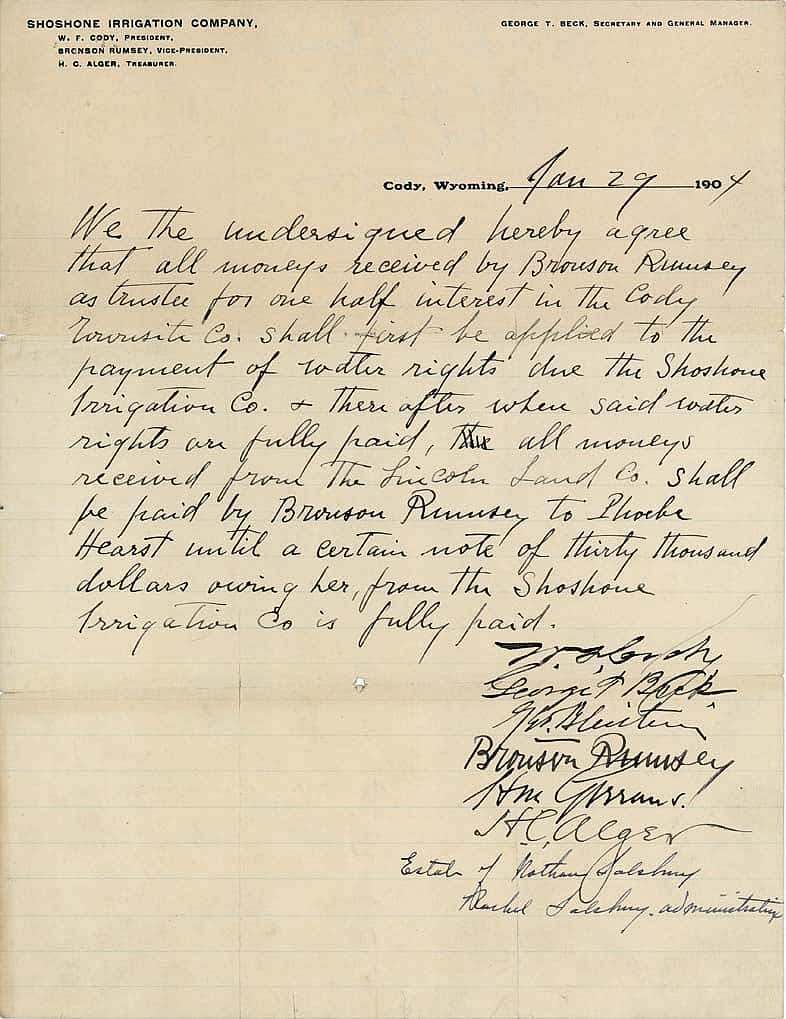 SHOSHONE IRRIGATION COMPANY,
W. F. CODY, PRESIDENT,
BRONSON RUMSEY, VICE-PRESIDENT,
H. C. ALGER, TREASURER.
GEORGE T. BECK, SECRETARY AND GENERAL MANAGER.
Cody, Wyoming, Jan 29 1904
We the undersigned hereby agree
that all moneys received by Bronson Rumsey
as trustee for one half interest in the Cody
Townsite Co. shall first be applied to the
payment of water rights due the Shoshone
Irrigation Co. & there after when said water
rights are fully paid, all moneys
received from the Lincoln Land Co. shall
be paid by Bronson Rumsey to Phoebe
Hearst until a certain note of thirty thousand
dollars owing her, from the Shoshone
Irrigation Co is fully paid.
W. F. Cody
George T Beck
Geo. Bleistein
Bronson Rumsey
HM Gerrans.
H.C. Alger
Estate of Nathan Salsbury
Rachel Salsbury. administratrix